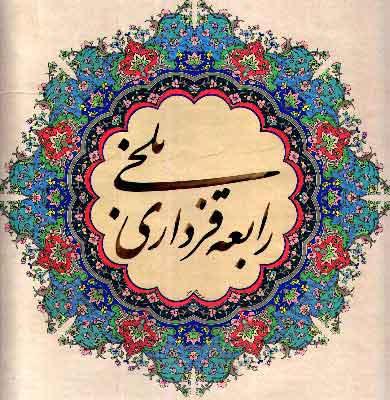 رابعه قزداری
بلخی